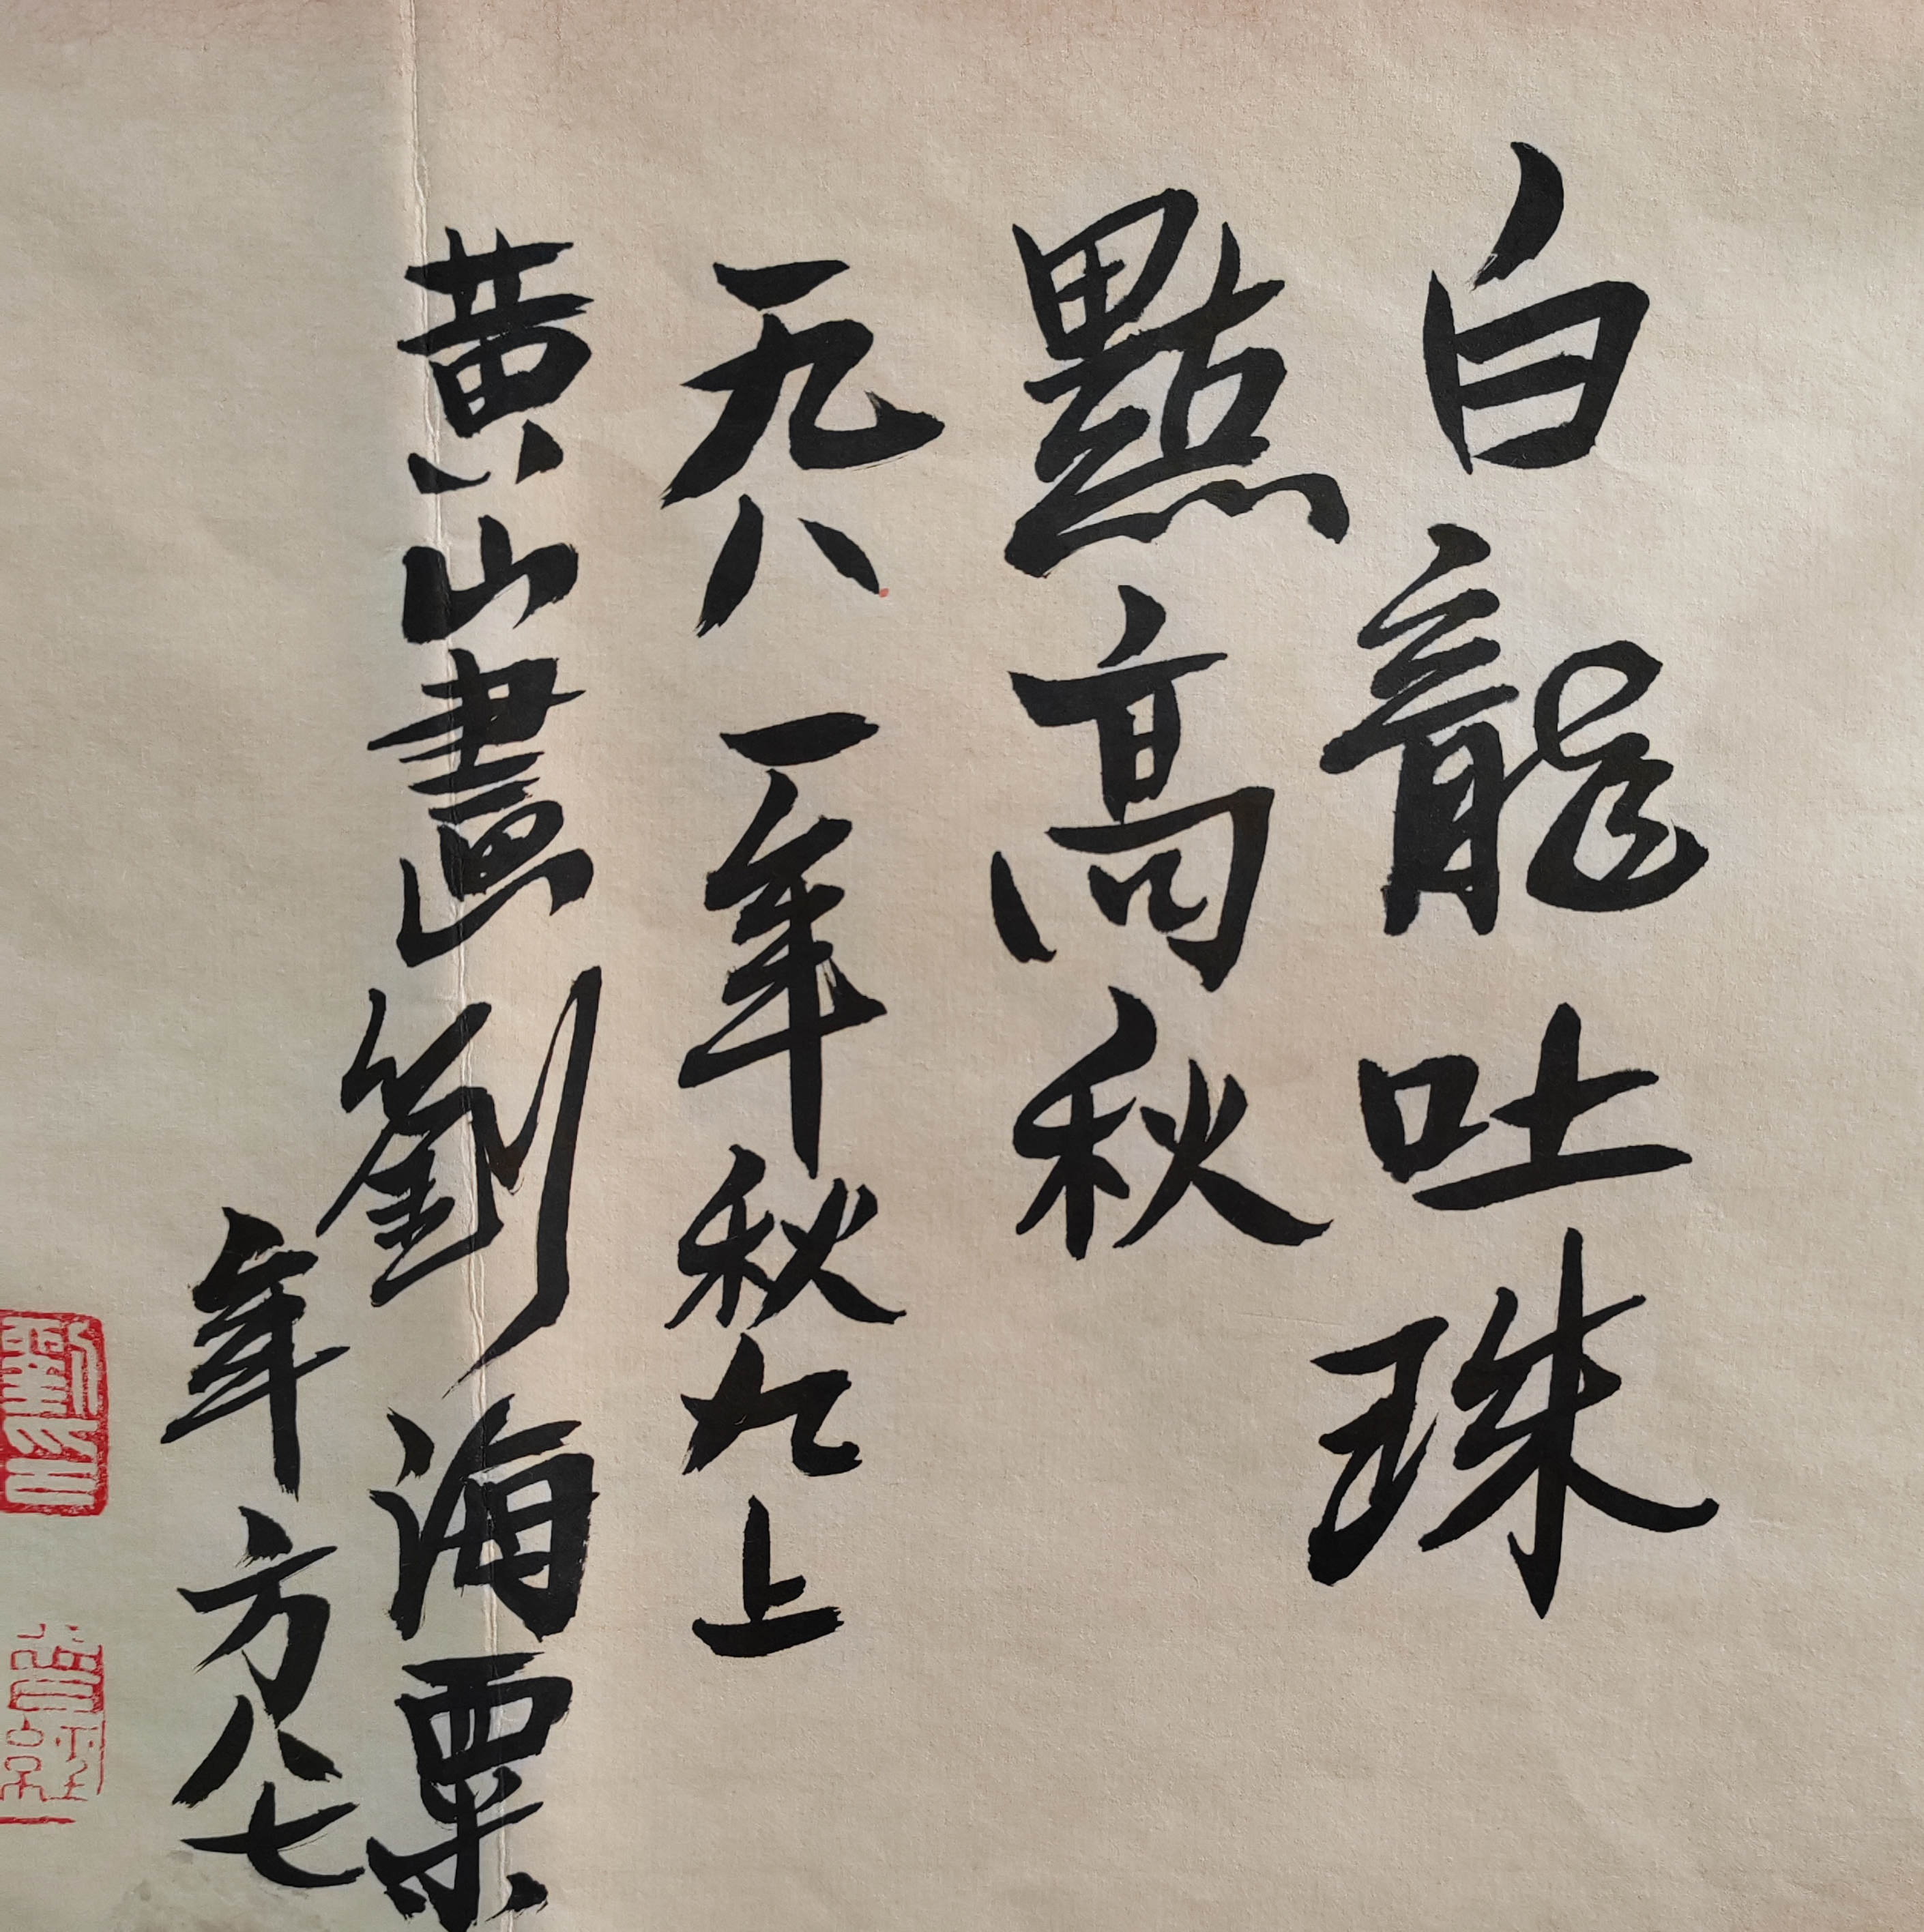 白龍吐珠
點高秋
一九八一年秋九上
黄山畫劉海粟
年方八七